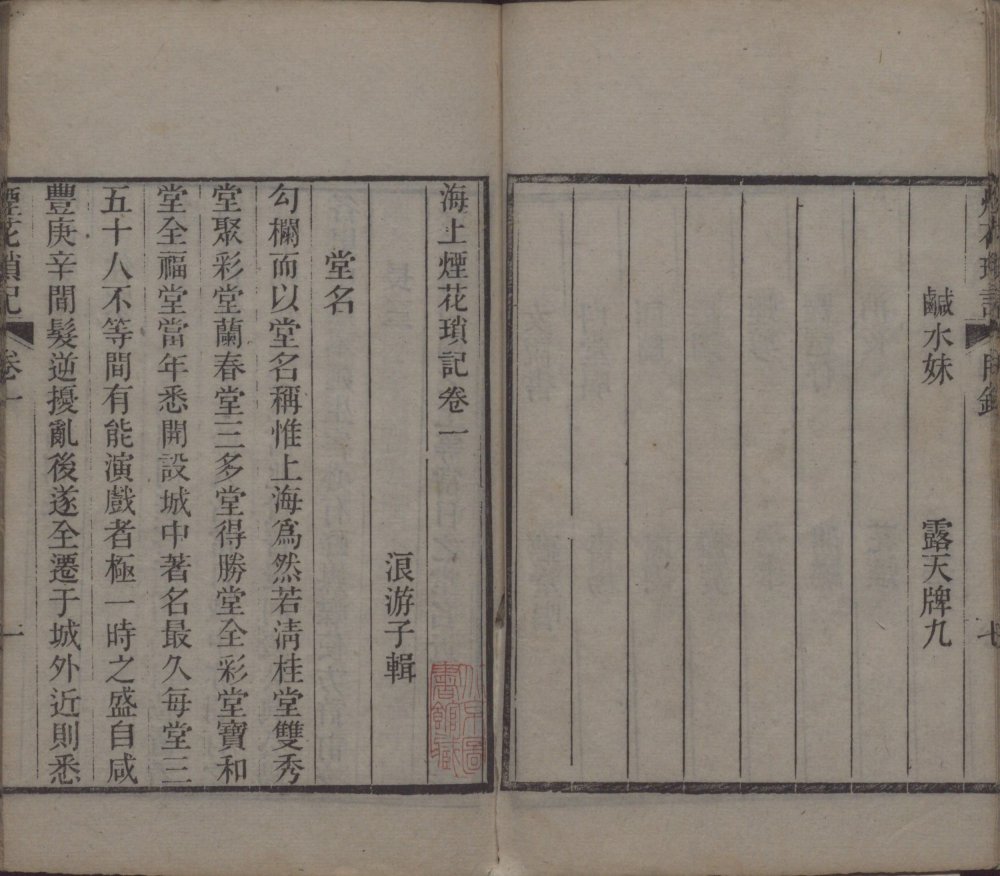 鹹水妹　露天牌九
海上煙花瑣記卷一
浪游子輯
堂名
勾欄而以堂名稱惟上海爲然若淸桂堂雙秀
堂聚彩堂蘭春堂三多堂得勝堂全彩堂寶和
堂全福堂當年悉開設城中著名最久每堂三
五十人不等間有能演戲者極一時之盛自咸
豐庚辛間髮逆擾亂後遂全遷于城外近則悉
煙花瑣記　卷一　一